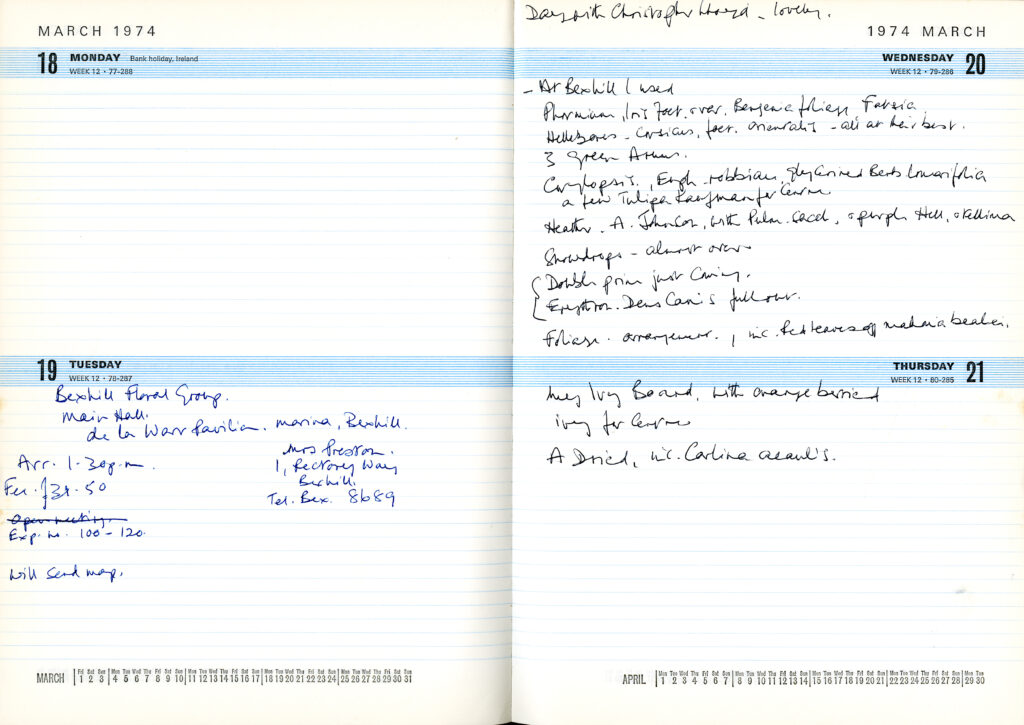 MARCH 1974
18 MONDAY Bank holiday, Ireland
WEEK 12 • 77-288
19 TUESDAY
WEEK 12 • 78-287
Bexhill Floral Group.
Main Hall.
de la Warr Pavilion. Marina, Bexhill.
Mrs Preston.
1, Rectory Way
Bexhill.
Tel. Bex. 8689
Arr. 1-30 p.m.
Fee. £31.50
Open meeting.
Exp. no. 100 - 120.
Will send map.
MARCH
Fri Sat Sun Mon Tue Wed Thu Fri Sat Sun Mon Tue Wed Thu Fri Sat Sun Mon Tue Wed Thu Fri Sat Sun Mon Tue Wed Thu Fri Sat Sun
1 2 3 4 5 6 7 8 9 10 11 12 13 14 15 16 17 18 19 20 21 22 23 24 25 26 27 28 29 30 31
Day with Christopher Lloyd - lovely.
1974 MARCH
WEDNESDAY 20
WEEK 12 • 79-286
- At Bexhill I used
Phormium, Iris foet. over. Bergenia foliage Fatsia
Hellebores - Corsicus, foet. Orientalis - all at their best.
3 Green Arums.
Corylopsis, Euph. robbiae, glycerined Berb. lomarifolia
a few Tulipa Kaufman for Centre
Heather. A. Johnson, with Pulm. sacc, a purple Hell, & tellima
Snowdrops - almost over
Double prim just coming.
Erythron. Dens Canis full out.
Foliage arrangement, inc. Red leaves off mahonia bealei.
THURSDAY 21
WEEK 12 • 80-285
Ivy Board, with orange berried
ivy for Centre
A Dried, inc. Carlina acaulis.
APRIL
Mon Tue Wed Thu Fri Sat Sun Mon Tue Wed Thu Fri Sat Sun Mon Tue Wed Thu Fri Sat Sun Mon Tue Wed Thu Fri Sat Sun Mon Tue
1 2 3 4 5 6 7 8 9 10 11 12 13 14 15 16 17 18 19 20 21 22 23 24 25 26 27 28 29 30